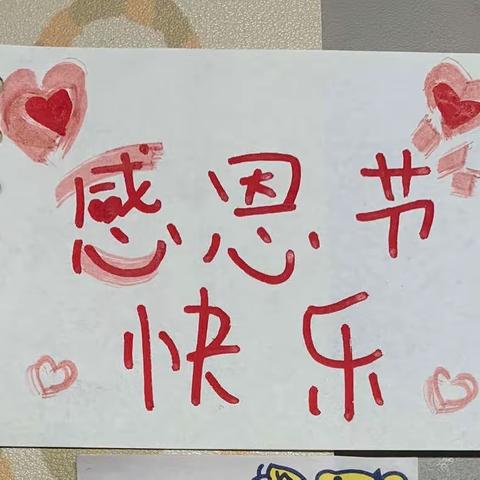 感恩节
快乐